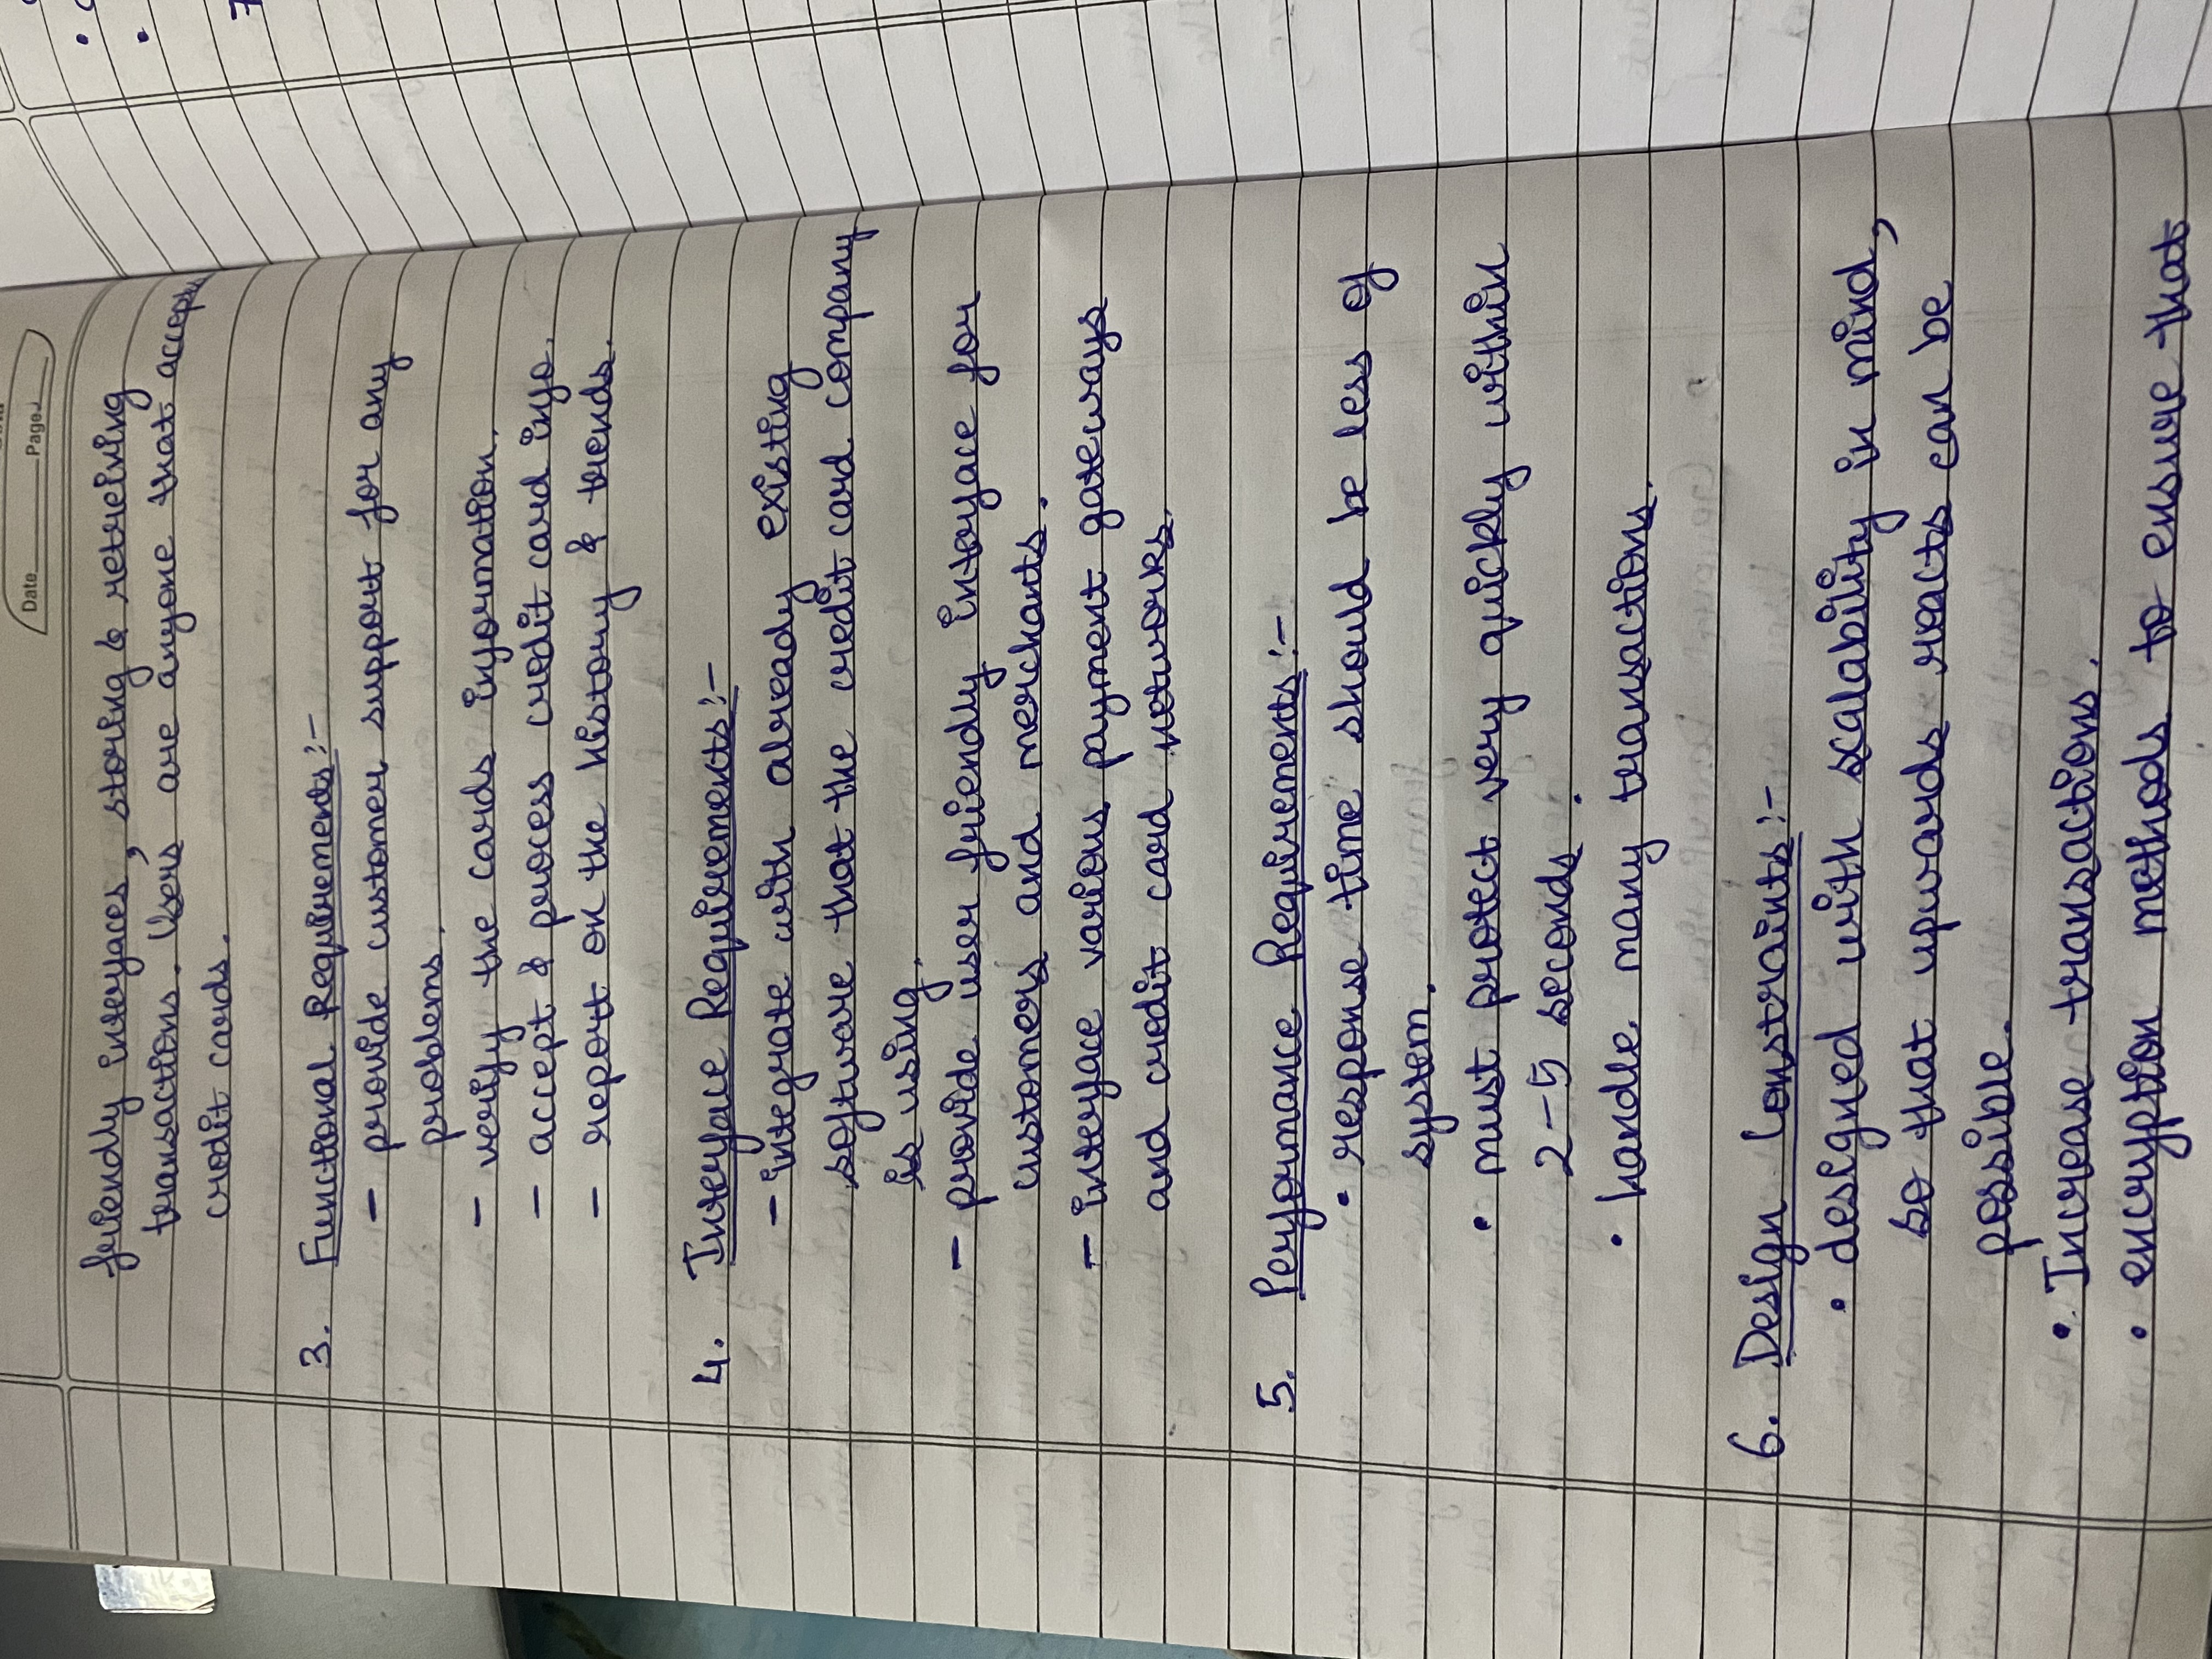 Date Page
friendly interfaces, storing & retreiving
transactions. Users are anyone that accepts
credit cards.
3. Functional Requirements:-
- provide customer support for any
problems.
- verify the cards information.
- accept & process credit card info.
- report on the history & trends.
4. Interface Requirements:-
- integrate with already existing
software that the credit card company
is using.
- provide user friendly interface for
customers and merchants.
- interface various payment gateways
and credit card networks.
5. Performance Requirements:-
• response time should be less of
system.
• must protect very quickly within
2-5 seconds.
• handle many transactions.
6. Design Constraints:-
• designed with scalability in mind,
so that upwards reacts can be
possible.
• Increase transactions.
• encryption methods to ensure that
7